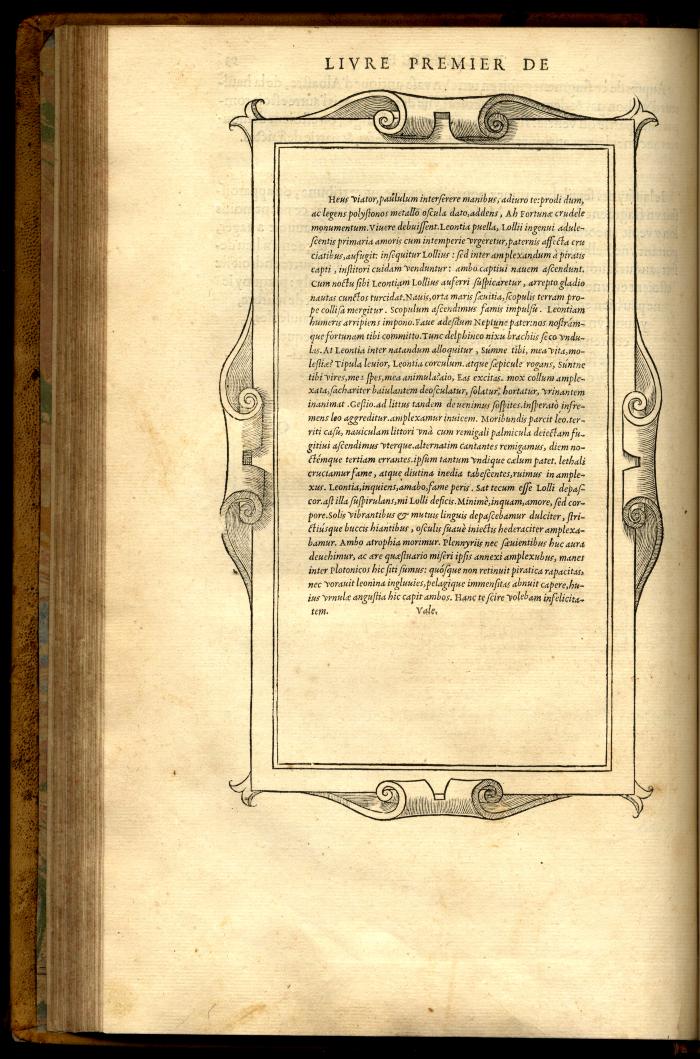 LIVRE PREMIER DE
Heus viator, paũlulum interserere manibus, adiuro te: prodi dum,
ac legens polystonos metallo oscula dato, addens, Ah Fortunæ crudele
monumentum. Viuere debuissent. Leontia puella, Lollii ingenui adule-
scentis primaria amoris cum intemperie vrgeretur, paternis affecta cru
ciatibus, aufugit: insequitur Lollius: sed inter amplexandum à piratis
capti, institori cuidam venduntur: ambo captiui nauem ascendunt.
Cum noctu sibi Leontiam Lollius auferri suspicaretur, arrepto gladio
nautas cunctos turcidat. Nauis, orta maris sæuitia, scopulis terram pro-
pe collisa mergitur. Scopulum ascendimus famis impulsu. Leontiam
humeris arripiens impono. Faue adesdum Neptune pater: nos nostrám-
que fortunam tibi committo. Tunc delphineo nixu brachiis seco vndu-
las. At Leontia inter natandum alloquitur, Sumne tibi, mea vita, mo-
lestiæ? Tipula leuior, Leontia corculum. atque sæpicule rogans, Suntne
tibi vires, me: spes, mea animula? aio, Eas excitas. mox collum ample-
xata, sachariter baiulantem deosculatur, solatur, hortatur, vrinantem
inanimat. Gestio. ad littus tandem deuenimus sospites. insperatò infre-
mens leo aggreditur. amplexamur inuicem. Moribundis parcit leo. ter-
riti casu, nauiculam littori vnà cum remigali palmicula deiectam fu-
gitiui ascendimus vterque. alternatim cantantes remigamus, diem no-
ctémque tertiam errantes. ipsum tantum vndique cælum patet. lethali
cruciamur fame, atque diutina inedia tabescentes, ruimus in ample-
xus. Leontia, inquiens, amabo, fame peris. Sat tecum esse Lolli depas-
cor. ast illa suspirulans, mi Lolli deficis. Minimè, inquam, amore, sed cor-
pore. Solis vibrantibus & mutuis linguis depascebamur dulciter, stri-
ctiúsque buccis hiantibus, osculis suauè iniectis hederaciter amplexa-
bamur. Ambo atrophia morimur. Plemyriis nec sæuientibus huc aura
deuehimur, ac are quæstuario miseri ipsis annexi amplexubus, manes
inter Plotonicos hic siti sumus: quósque non retinuit piratica rapacitas,
nec vorauit leonina ingluuies, pelagique immensitas abnuit capere, hu-
ius vrnulæ angustia hic capit ambos. Hanc te scire volebam infelicita-
tem. Vale.